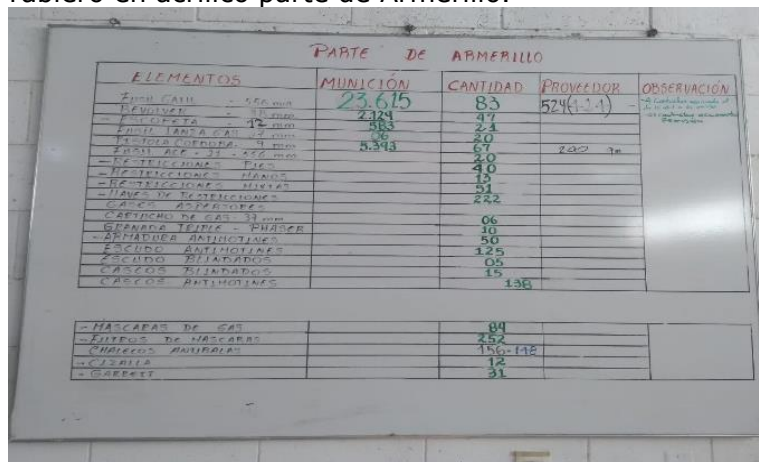 Tablero en acrílico parte de Armerillo.
PARTE DE ARMERILLO
ELEMENTOS MUNICIÓN CANTIDAD PROVEEDOR OBSERVACIÓN
FUSIL GALIL - 556 mm 23.615 83 524
REVOLVER - 38 mm 2.124 47
- ESCOPETA - 12 mm 583 21
FUSIL LANZA GAS 37 mm 06 20
PISTOLA CORDOBA. 9 mm 5.393 67 200
FUSIL ACE - 21 - 556 mm 20
- RESTRICCIONES PIES 40
- RESTRICCIONES MANOS 13
- RESTRICCIONES MIXTAS 51
- LLAVES DE RESTRICCIONES 222
GASES ASPERSORES
CARTUCHO DE GAS - 37 mm 06
GRANADA TRIPLE - PHASER 10
- ARMADURA ANTIMOTINES 50
ESCUDO ANTIMOTINES 125
ESCUDO BLINDADOS 05
CASCOS BLINDADOS 15
CASCOS ANTIMOTINES 138
- MASCARAS DE GAS 84
- FILTROS DE MASCARAS 252
CHALECOS ANTIBALAS 156-148
- CIZALLA 12
- GARRETT 31